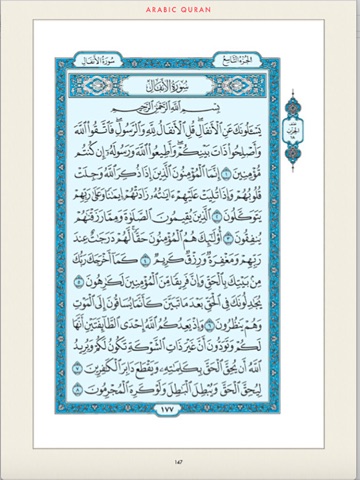 ARABIC QURAN
سُورَةُ الأَنفَال
الجُزْءُ التَّاسِعُ
سُورَةُ الأَنفَالِ
بِسْمِ اللَّهِ الرَّحْمَٰنِ الرَّحِيمِ
يَسْـَٔلُونَكَ عَنِ ٱلْأَنفَالِ ۖ قُلِ ٱلْأَنفَالُ لِلَّهِ وَٱلرَّسُولِ ۖ فَٱتَّقُوا۟ ٱللَّهَ
وَأَصْلِحُوا۟ ذَاتَ بَيْنِكُمْ ۖ وَأَطِيعُوا۟ ٱللَّهَ وَرَسُولَهُۥٓ إِن كُنتُم
مُّؤْمِنِينَ ١ إِنَّمَا ٱلْمُؤْمِنُونَ ٱلَّذِينَ إِذَا ذُكِرَ ٱللَّهُ وَجِلَتْ
قُلُوبُهُمْ وَإِذَا تُلِيَتْ عَلَيْهِمْ ءَايَٰتُهُۥ زَادَتْهُمْ إِيمَٰنًا وَعَلَىٰ رَبِّهِمْ
يَتَوَكَّلُونَ ٢ ٱلَّذِينَ يُقِيمُونَ ٱلصَّلَوٰةَ وَمِمَّا رَزَقْنَٰهُمْ
يُنفِقُونَ ٣ أُو۟لَٰٓئِكَ هُمُ ٱلْمُؤْمِنُونَ حَقًّا ۚ لَّهُمْ دَرَجَٰتٌ عِندَ
رَبِّهِمْ وَمَغْفِرَةٌ وَرِزْقٌ كَرِيمٌ ٤ كَمَآ أَخْرَجَكَ رَبُّكَ
مِنۢ بَيْتِكَ بِٱلْحَقِّ وَإِنَّ فَرِيقًا مِّنَ ٱلْمُؤْمِنِينَ لَكَٰرِهُونَ ٥
يُجَٰدِلُونَكَ فِى ٱلْحَقِّ بَعْدَ مَا تَبَيَّنَ كَأَنَّمَا يُسَاقُونَ إِلَى ٱلْمَوْتِ
وَهُمْ يَنظُرُونَ ٦ وَإِذْ يَعِدُكُمُ ٱللَّهُ إِحْدَى ٱلطَّآئِفَتَيْنِ أَنَّهَا
لَكُمْ وَتَوَدُّونَ أَنَّ غَيْرَ ذَاتِ ٱلشَّوْكَةِ تَكُونُ لَكُمْ وَيُرِيدُ
ٱللَّهُ أَن يُحِقَّ ٱلْحَقَّ بِكَلِمَٰتِهِۦ وَيَقْطَعَ دَابِرَ ٱلْكَٰفِرِينَ ٧
لِيُحِقَّ ٱلْحَقَّ وَيُبْطِلَ ٱلْبَٰطِلَ وَلَوْ كَرِهَ ٱلْمُجْرِمُونَ ٨
١٧٧
147